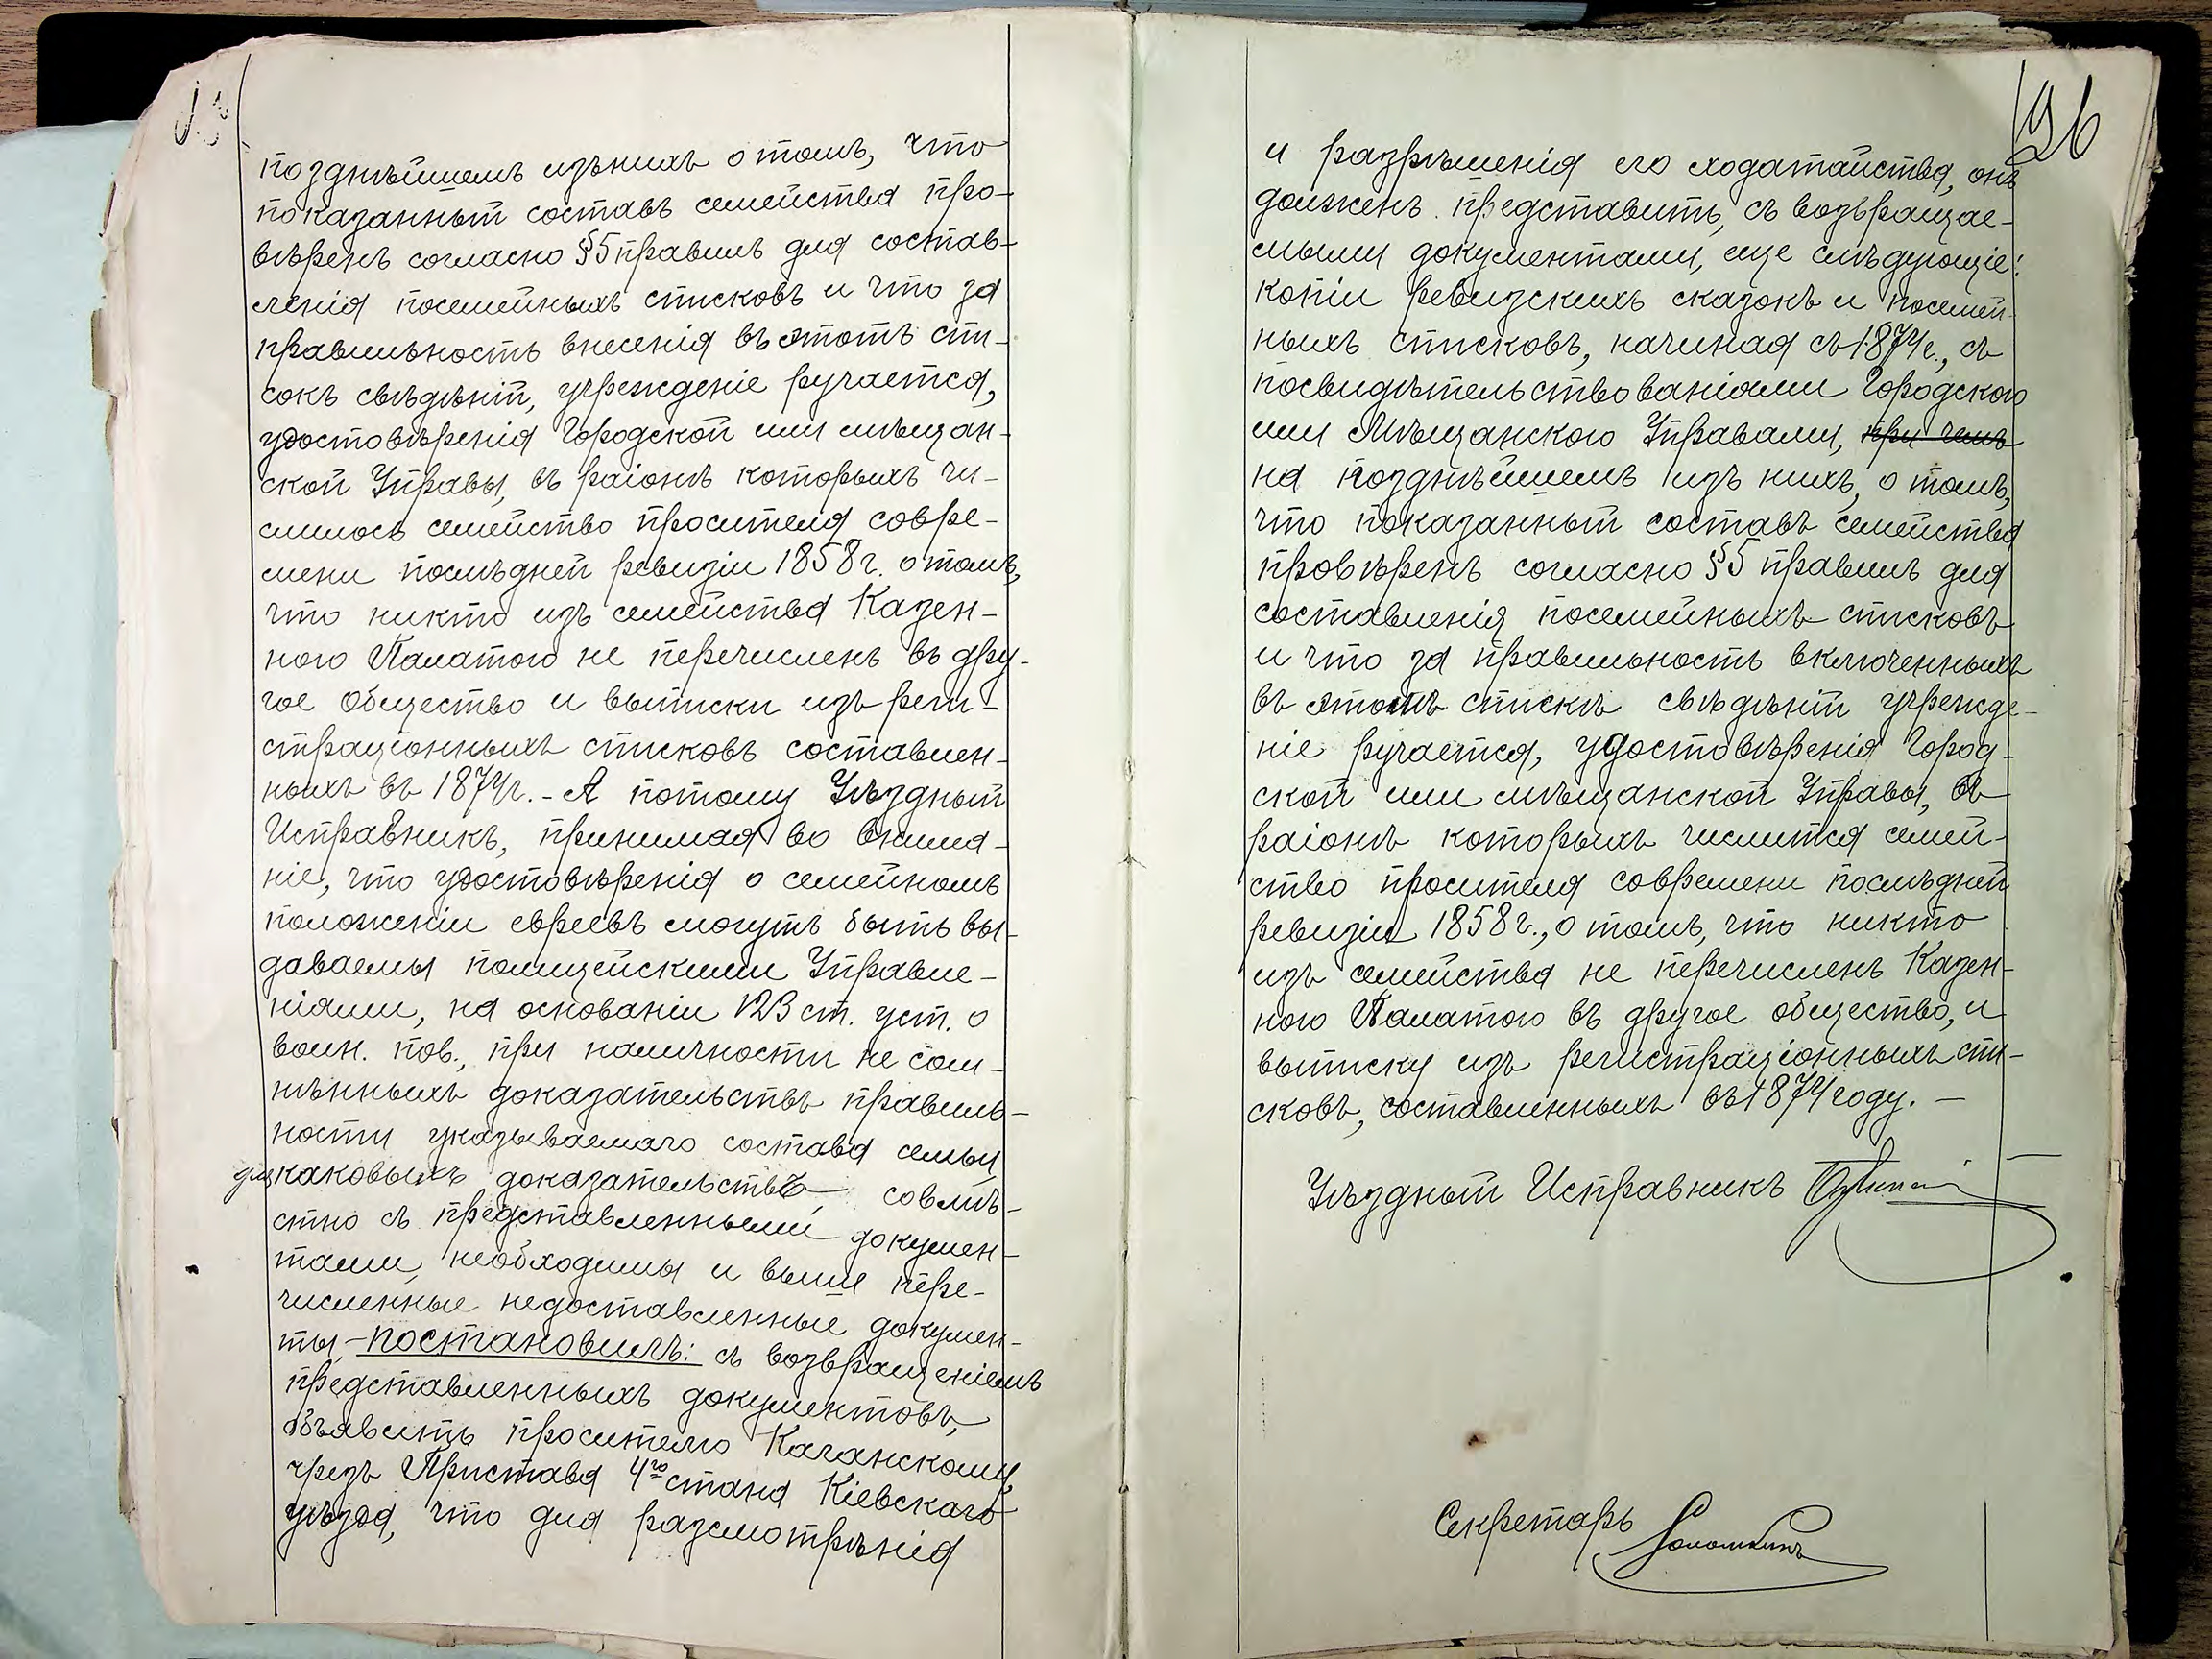 позднѣйшемъ изъ нихъ о томъ, что
показанный составъ семейства про-
вѣренъ согласно §5 правилъ для состав-
ленія посемейныхъ списковъ и что за
правильность внесенія въ этотъ спи-
сокъ свѣдѣній, учрежденіе ручается,
удостовѣренія Городской или мѣщан-
ской Управы, въ раіонѣ которыхъ чи-
слилось семейство просителя совре-
мени послѣдней ревизіи 1858 г. о томъ,
что никто изъ семейства Казен-
ною Палатою не перечисленъ въ дру-
гое общество и выписки изъ реги-
страціонныхъ списковъ составлен-
ныхъ въ 1874 г. - А потому Уѣздный
Исправникъ, принимая во внима-
ніе, что удостовѣренія о семейномъ
положеніи евреевъ могутъ быть вы-
даваемы полицейскими Управле-
ніями, на основаніи 123 ст. уст. о
воин. пов., при наличности не сом-
нѣнныхъ доказательствъ правиль-
ности указываемаго состава семьи,
для каковыхъ доказательствъ, совмѣ-
стно съ представленными докумен-
тами, необходимы и выше пере-
численные недоставленные докумен-
ты, - постановилъ: съ возвращеніемъ
представленныхъ документовъ,
объявить просителю Каганскому,
чрезъ Пристава 4го стана Кіевскаго
уѣзда, что для разсмотрѣнія
96
и разрѣшенія его ходатайства, онъ
долженъ представить, съ возвращае-
мыми документами, еще слѣдующіе:
копіи ревизскихъ сказокъ и посемей-
ныхъ списковъ, начиная съ 1874 г., съ
посвидѣтельствованіями Городскою
или Мѣщанскою Управами, при чемъ
на позднѣйшемъ изъ нихъ, о томъ,
что показанный составъ семейства
провѣренъ согласно §5 правилъ для
составленія посемейныхъ списковъ
и что за правильность включенныхъ
въ этомъ спискѣ свѣдѣній учрежде-
ніе ручается, удостовѣренія Город-
ской или мѣщанской Управы, въ
раіонѣ которыхъ числится семей-
ство просителя современи послѣдней
ревизіи 1858 г., о томъ, что никто
изъ семейства не перечисленъ Казен-
ною Палатою въ другое общество, и
выписку изъ регистраціонныхъ спи-
сковъ, составленныхъ въ 1874 году. -
Уѣздный Исправникъ
Секретарь